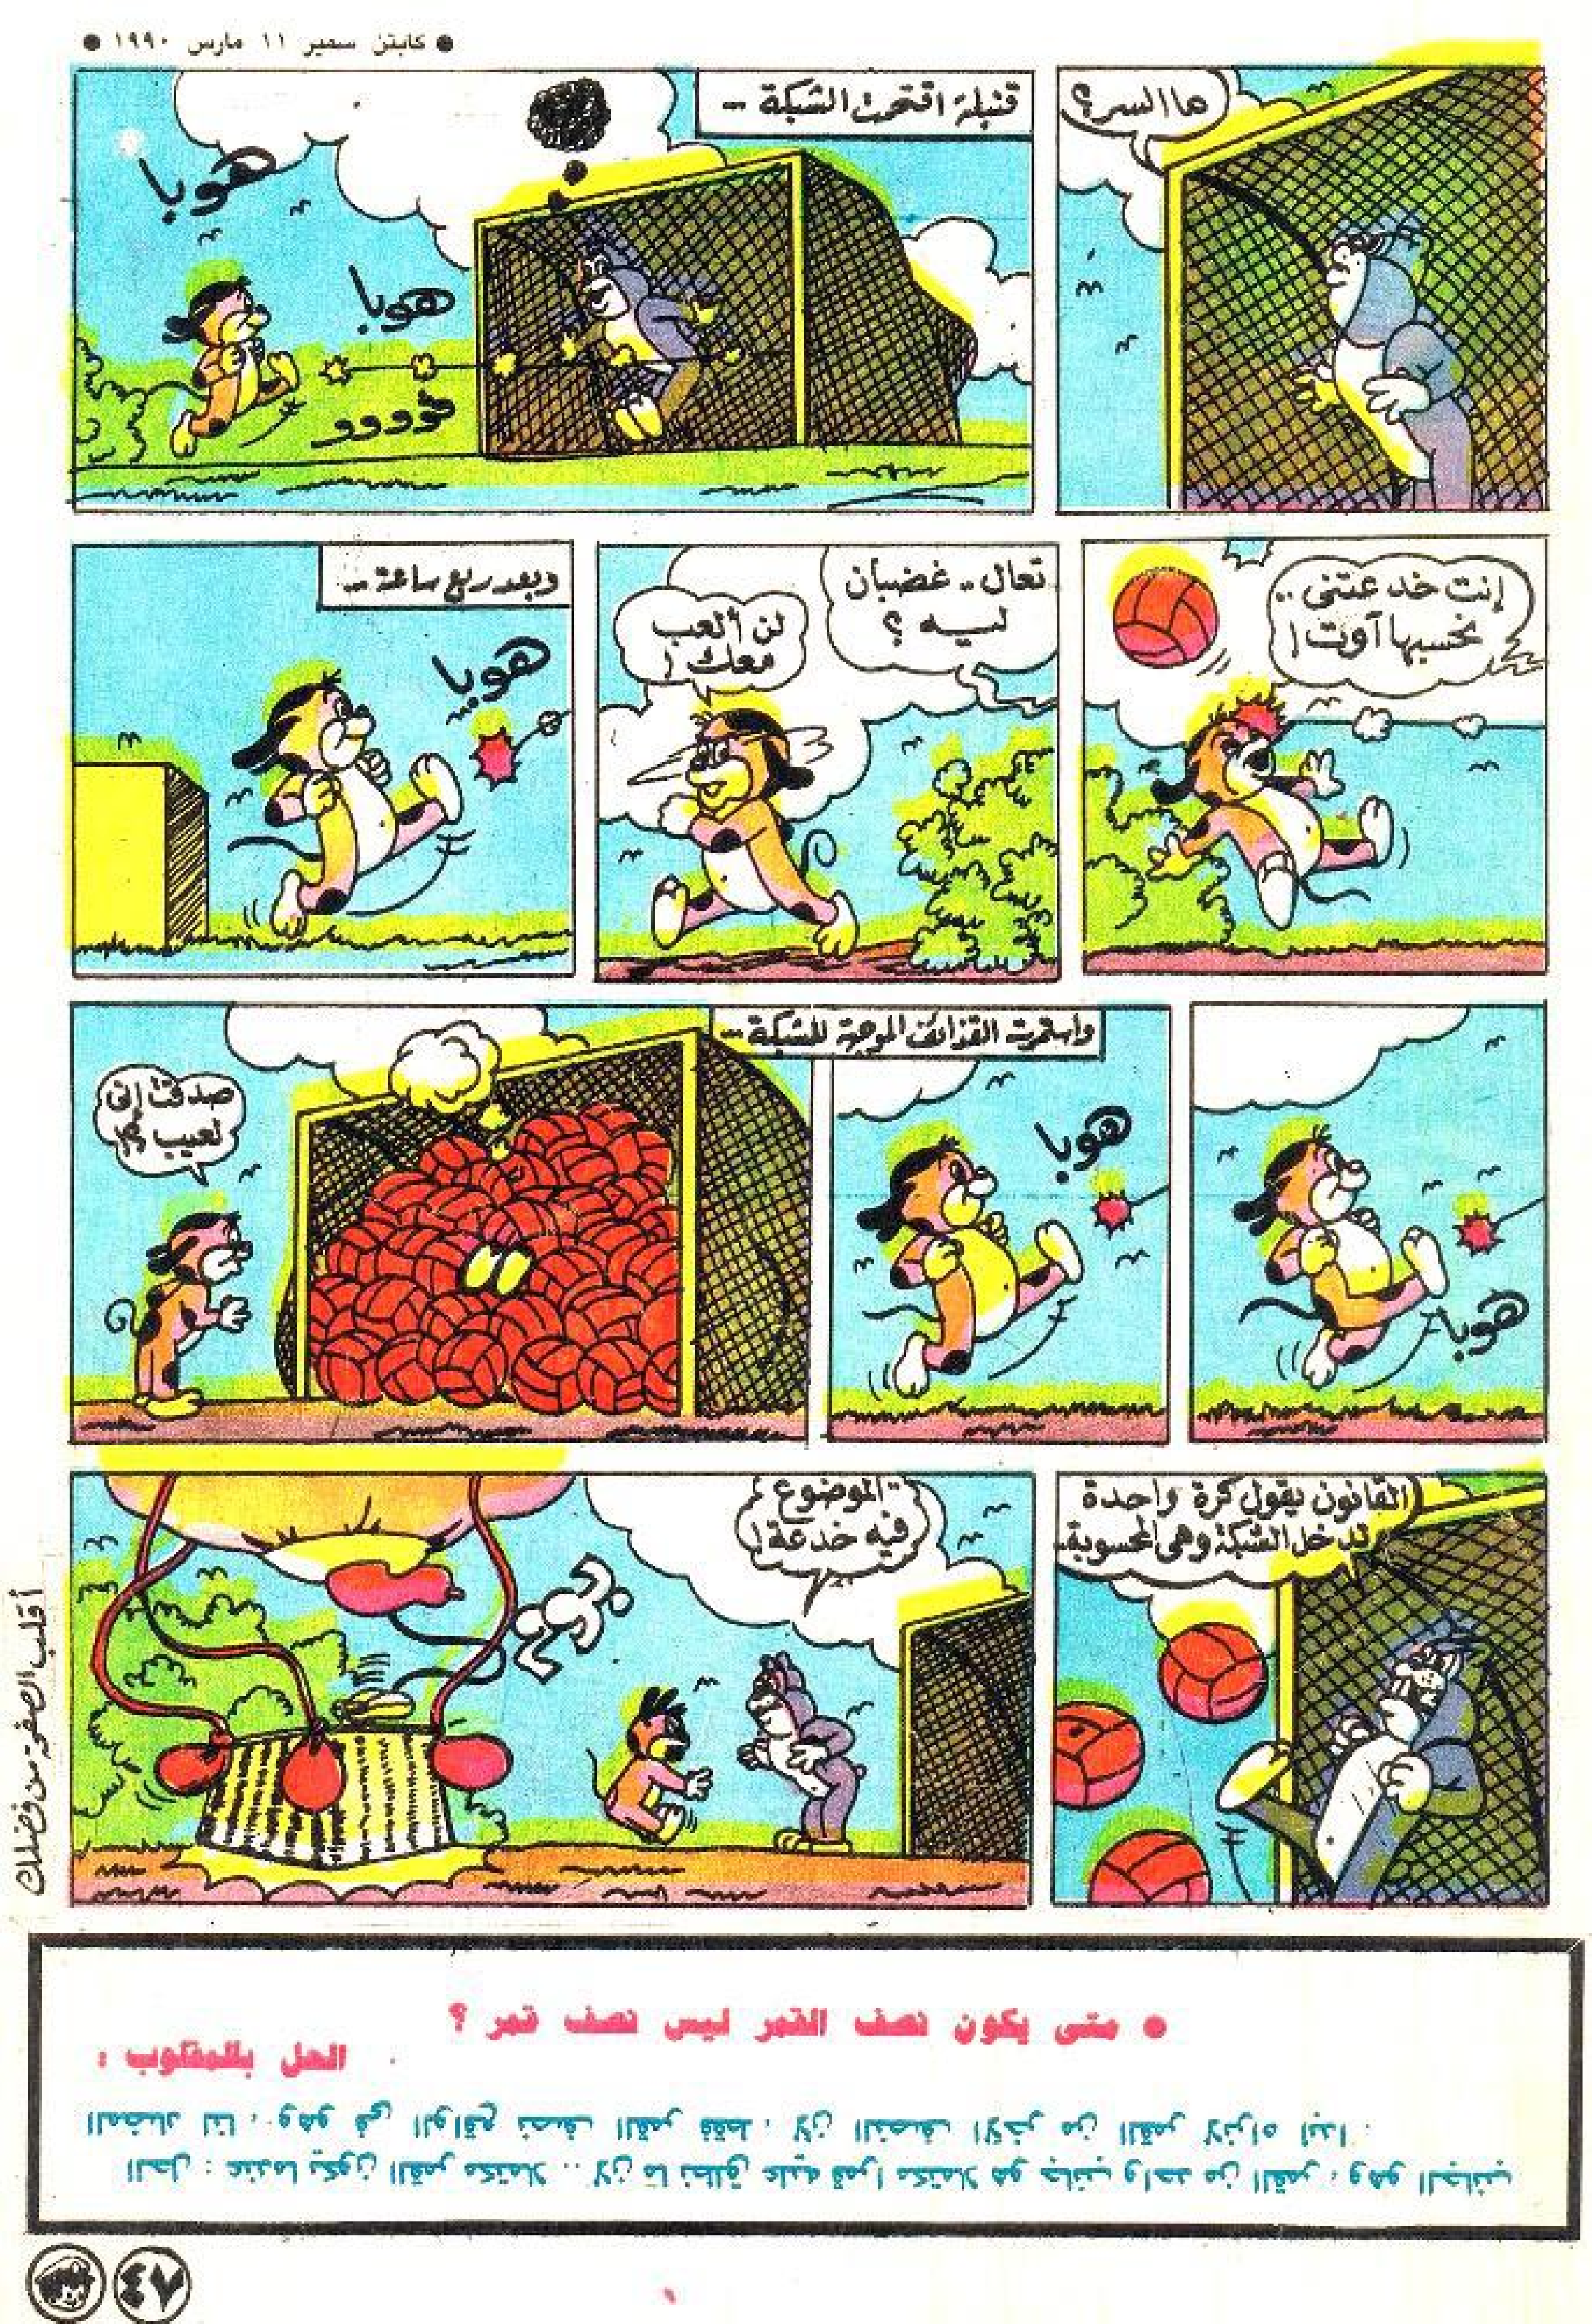 ● كابتن سمير ١١ مارس ١٩٩٠ ●
ما السر؟
قنبلة اقتحمت الشبكة --
هوبا
هوبا
إنت خدعتنى ..
نحسبها آوت!
تعال - غضبان
ليه ؟
لن ألعب
معك !
وبعد ربع ساعة --
هوبا
هوبا
واستمرت القذائف الموجهة للشبكة --
هوبا
صدقت إنى
لعيب ؟!
القانون يقول كرة واحدة
تدخل الشبكة وهى المحسوبة
الموضوع
فيه خدعة !
أقلب الصفحة من فضلك
● متى يكون نصف القمر ليس نصف قمر ؟
الحل بالمقلوب :
الحل : عندما يكون القمر مكتملا .. لأن ما نطلق عليه قمرا مكتملا هو جانب واحد من القمر ، وهو الجانب
المضاء لنا ، وهو فى الواقع نصف القمر فقط ، لأن النصف الآخر من القمر لانراه أبدا .
٤٧